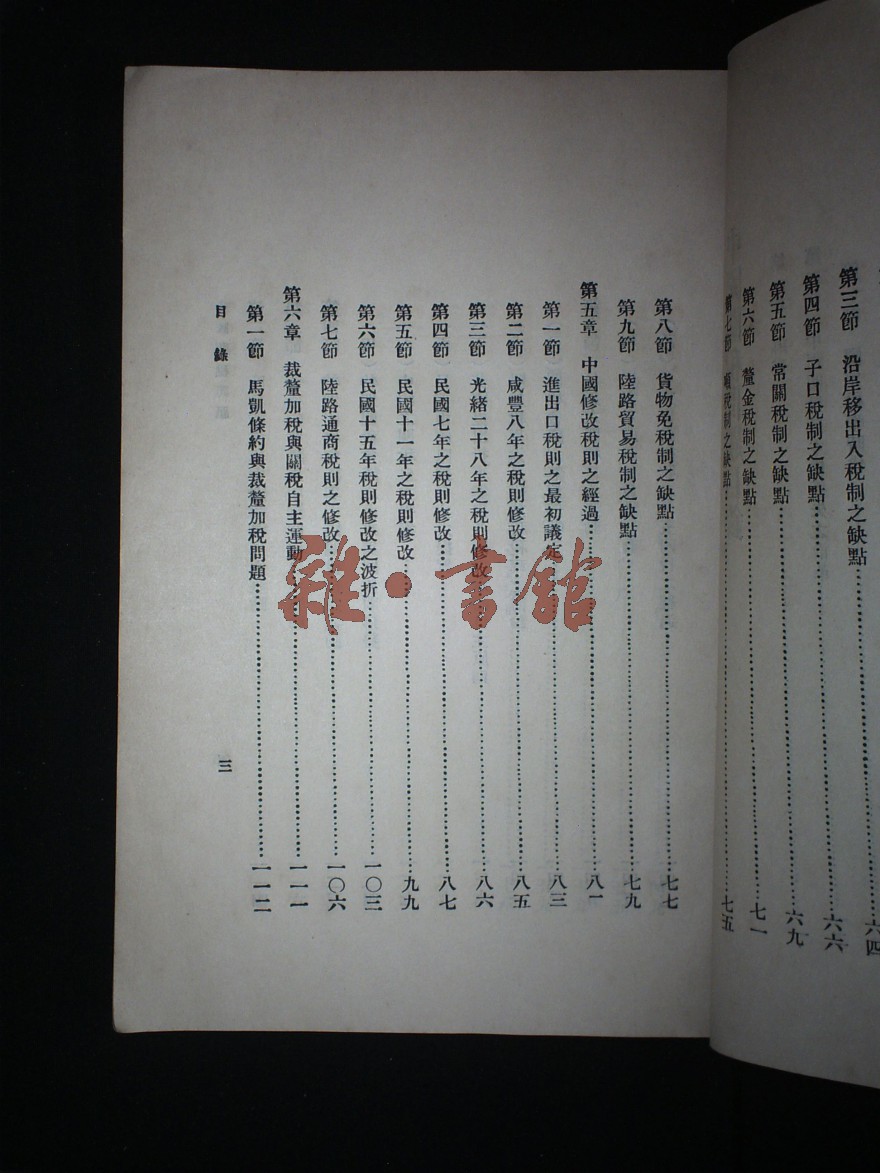 第三節　沿岸移出入稅制之缺點……六四
第四節　子口稅制之缺點……六六
第五節　常關稅制之缺點……六九
第六節　釐金稅制之缺點……七一
第七節　噸稅制之缺點……七五
第八節　貨物免稅制之缺點……七七
第九節　陸路貿易稅制之缺點……七九
第五章　中國修改稅則之經過……八一
第一節　進出口稅則之最初議定……八三
第二節　咸豐八年之稅則修改……八五
第三節　光緒二十八年之稅則修改……八六
第四節　民國七年之稅則修改……八七
第五節　民國十一年之稅則修改……九九
第六節　民國十五年稅則修改之波折……一〇三
第七節　陸路通商稅則之修改……一〇六
第六章　裁釐加稅與關稅自主運動……一一一
第一節　馬凱條約與裁釐加稅問題……一一二
目錄
三
雜·書館